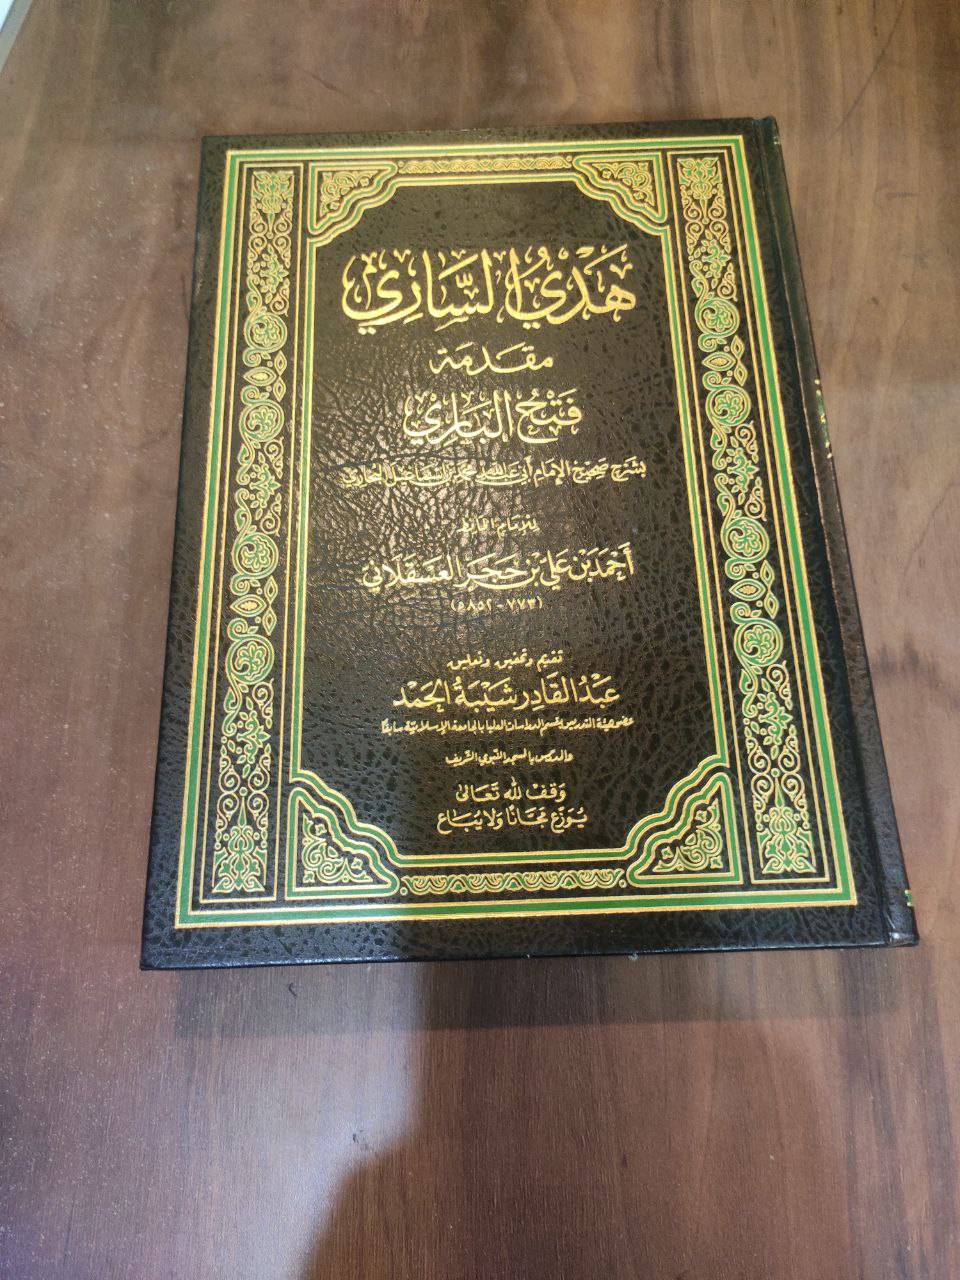 هَدْيُ السَّارِي
مقدمة
فَتْحُ البَارِي
بشرح صحيح الإمام أبي عبد الله محمد بن إسماعيل البخاري
للإمام الحافظ
أَحْمَد بْن عَلِي بْن حَجَر العَسْقَلَانِي
(٧٧٣ - ٨٥٢ه)
تقديم وتحقيق وتعليق
عَبْدُ القَادِر شَيْبَةُ الحَمْد
عضو هيئة التدريس بقسم الدراسات العليا بالجامعة الإسلامية سابقًا
والمدرس بالمسجد النبوي الشريف
وَقفٌ لله تَعَالىٰ
يُوَزّع مَجّانًا وَلا يُبَاع